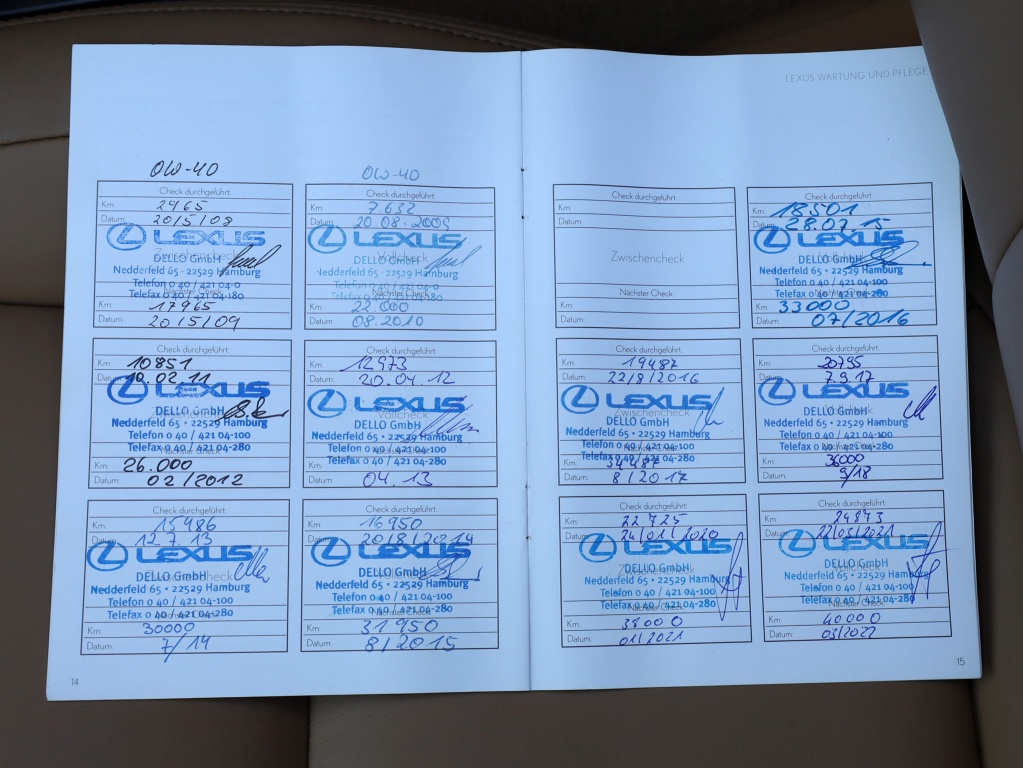 LEXUS WARTUNG UND PFLEGE
OW-40
Check durchgeführt
Km: 2465
Datum: 20/5/08
Zwischencheck
LEXUS
DELLO GmbH
Nedderfeld 65 • 22529 Hamburg
Telefon 0 40 / 421 04-0
Nächster Check
Telefax 0 40 / 421 04-180
Km: 17965
Datum: 20/5/09
OW-40
Check durchgeführt
Km: 7.632
Datum: 20.08.2009
LEXUS
DELLO GmbH
Nedderfeld 65 • 22529 Hamburg
Telefon 0 40 / 421 04-0
Nächster Check
Telefax 0 40 / 421 04-180
Km: 22.000
Datum: 08.2010
Check durchgeführt
Km:
Datum:
Zwischencheck
Nächster Check
Km:
Datum:
Check durchgeführt
Km: 18501
Datum: 28.07.15
LEXUS
DELLO GmbH
Nedderfeld 65 • 22529 Hamburg
Telefon 0 40 / 421 04-100
Nächster Check
Telefax 0 40 / 421 04-280
Km: 33000
Datum: 07/2016
Check durchgeführt
Km: 10851
Datum: 10.02.11
LEXUS
DELLO GmbH
Zwischencheck
Nedderfeld 65 • 22529 Hamburg
Telefon 0 40 / 421 04-100
Telefax 0 40 / 421 04-280
Nächster Check
Km: 26.000
Datum: 02/2012
Check durchgeführt
Km: 12973
Datum: 20.04.12
LEXUS
Vollcheck
DELLO GmbH
Nedderfeld 65 • 22529 Hamburg
Telefon 0 40 / 421 04-100
Nächster Check
Telefax 0 40 / 421 04-280
Km:
Datum: 04.13
Check durchgeführt
Km: 19487
Datum: 22/8/2016
LEXUS
Zwischencheck
DELLO GmbH
Nedderfeld 65 • 22529 Hamburg
Telefon 0 40 / 421 04-100
Nächster Check
Telefax 0 40 / 421 04-280
Km: 34487
Datum: 8/2017
Check durchgeführt
Km: 20795
Datum: 7.9.17
LEXUS
Vollcheck
DELLO GmbH
Nedderfeld 65 • 22529 Hamburg
Telefon 0 40 / 421 04-100
Nächster Check
Telefax 0 40 / 421 04-280
Km: 36000
Datum: 9/18
Check durchgeführt
Km: 15486
Datum: 12.7.13
LEXUS
DELLO GmbH
Zwischencheck
Nedderfeld 65 • 22529 Hamburg
Telefon 0 40 / 421 04-100
Telefax 0 40 / 421 04-280
Nächster Check
Km: 30000
Datum: 7/14
Check durchgeführt
Km: 16950
Datum: 20/8/2014
LEXUS
DELLO GmbH
Vollcheck
Nedderfeld 65 • 22529 Hamburg
Telefon 0 40 / 421 04-100
Telefax 0 40 / 421 04-280
Nächster Check
Km: 31950
Datum: 8/2015
Check durchgeführt
Km: 22725
Datum: 24/01/2020
LEXUS
DELLO GmbH
Zwischencheck
Nedderfeld 65 • 22529 Hamburg
Telefon 0 40 / 421 04-100
Telefax 0 40 / 421 04-280
Nächster Check
Km: 38000
Datum: 01/2021
Check durchgeführt
Km: 24873
Datum: 22/03/2021
LEXUS
DELLO GmbH
Vollcheck
Nedderfeld 65 • 22529 Hamburg
Telefon 0 40 / 421 04-100
Telefax 0 40 / 421 04-280
Nächster Check
Km: 40000
Datum: 03/2022
14
15